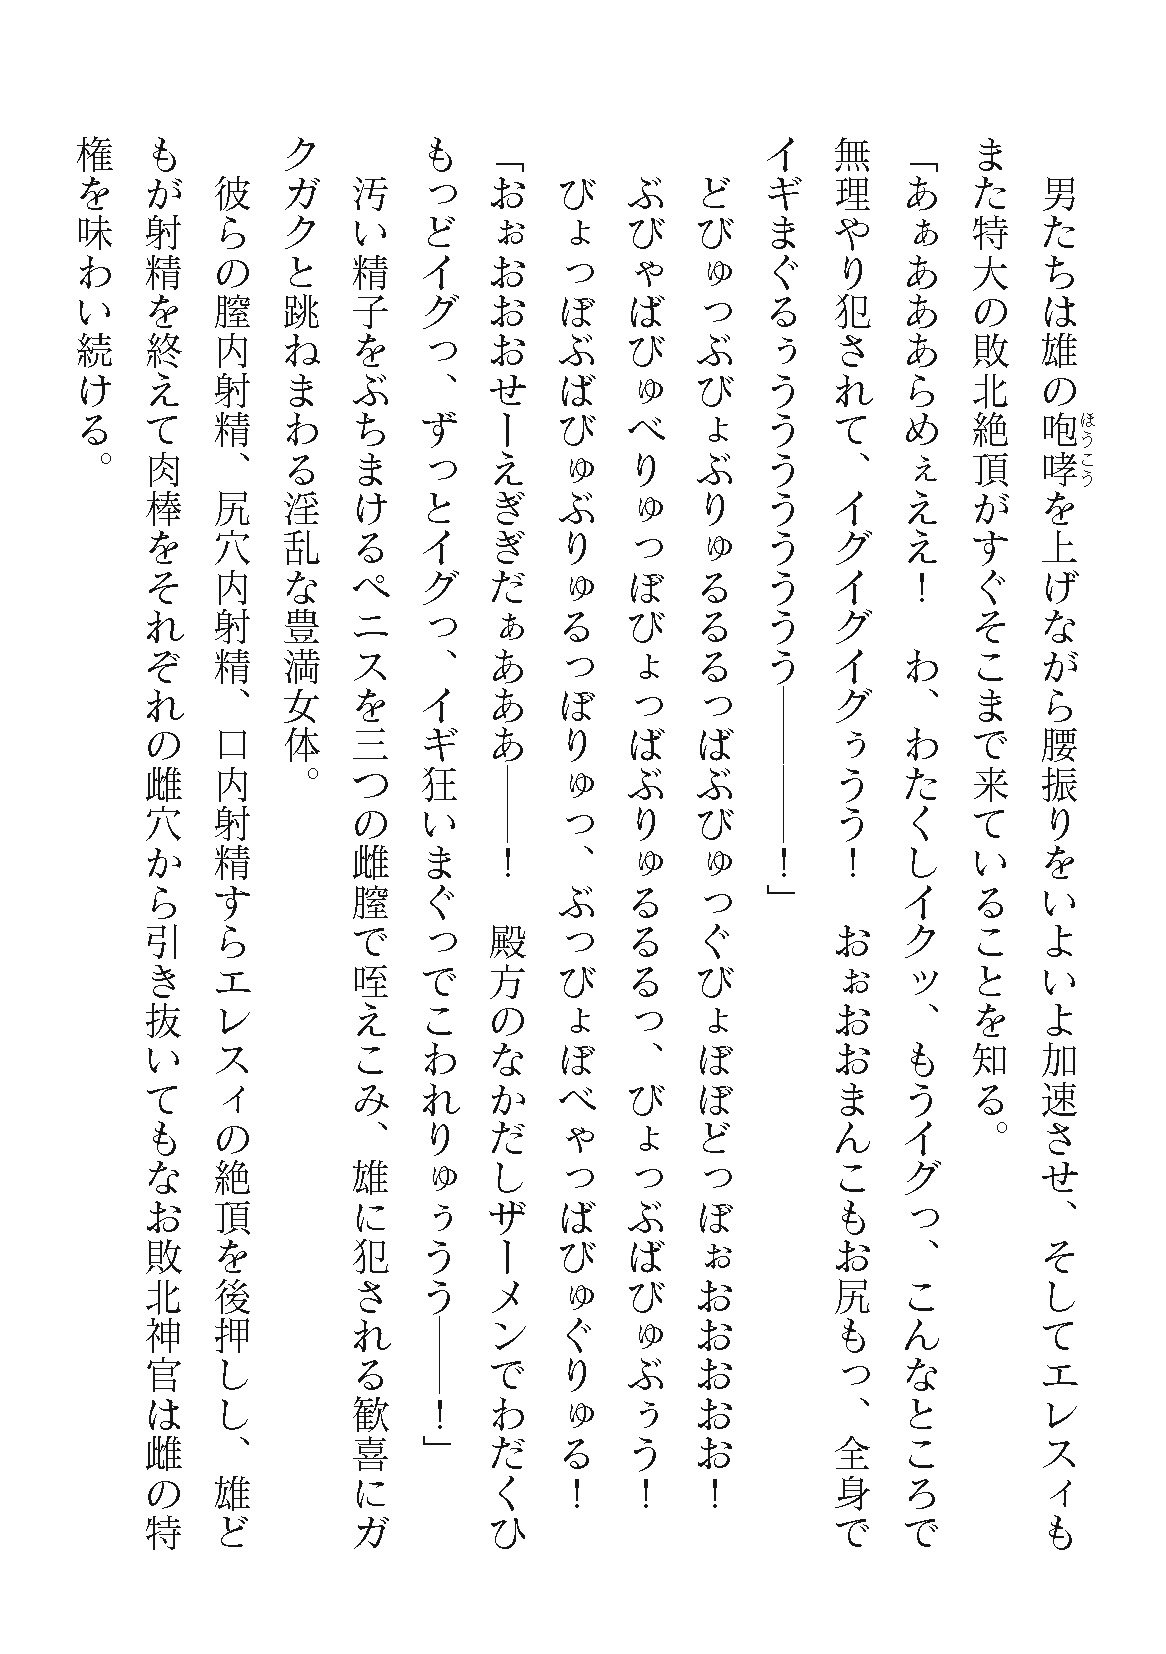 男たちは雄の咆哮を上げながら腰振りをいよいよ加速させ、そしてエレスィも
ほうこう
また特大の敗北絶頂がすぐそこまで来ていることを知る。
「あぁあああらめぇええ！　わ、わたくしイクッ、もうイグっ、こんなところで
無理やり犯されて、イグイグイグぅうう！　おぉおおまんこもお尻もっ、全身で
イギまぐるぅうううううううう――――！」
どびゅっぶびょぶりゅるるるっばぶびゅっぐびょぼぼどっぼぉおおおおお！
ぶびゃばびゅべりゅっぼびょっばぶりゅるるるっ、びょっぶばびゅぶぅう！
びょっぼぶばびゅぶりゅるっぼりゅっ、ぶっびょぼべゃっばびゅぐりゅる！
「おぉおおおせーえぎぎだぁあああ――！　殿方のなかだしザーメンでわだくひ
もっどイグっ、ずっとイグっ、イギ狂いまぐっでこわれりゅぅうう――！」
汚い精子をぶちまけるペニスを三つの雌膣で咥えこみ、雄に犯される歓喜にガ
クガクと跳ねまわる淫乱な豊満女体。
彼らの膣内射精、尻穴内射精、口内射精すらエレスィの絶頂を後押しし、雄ど
もが射精を終えて肉棒をそれぞれの雌穴から引き抜いてもなお敗北神官は雌の特
権を味わい続ける。